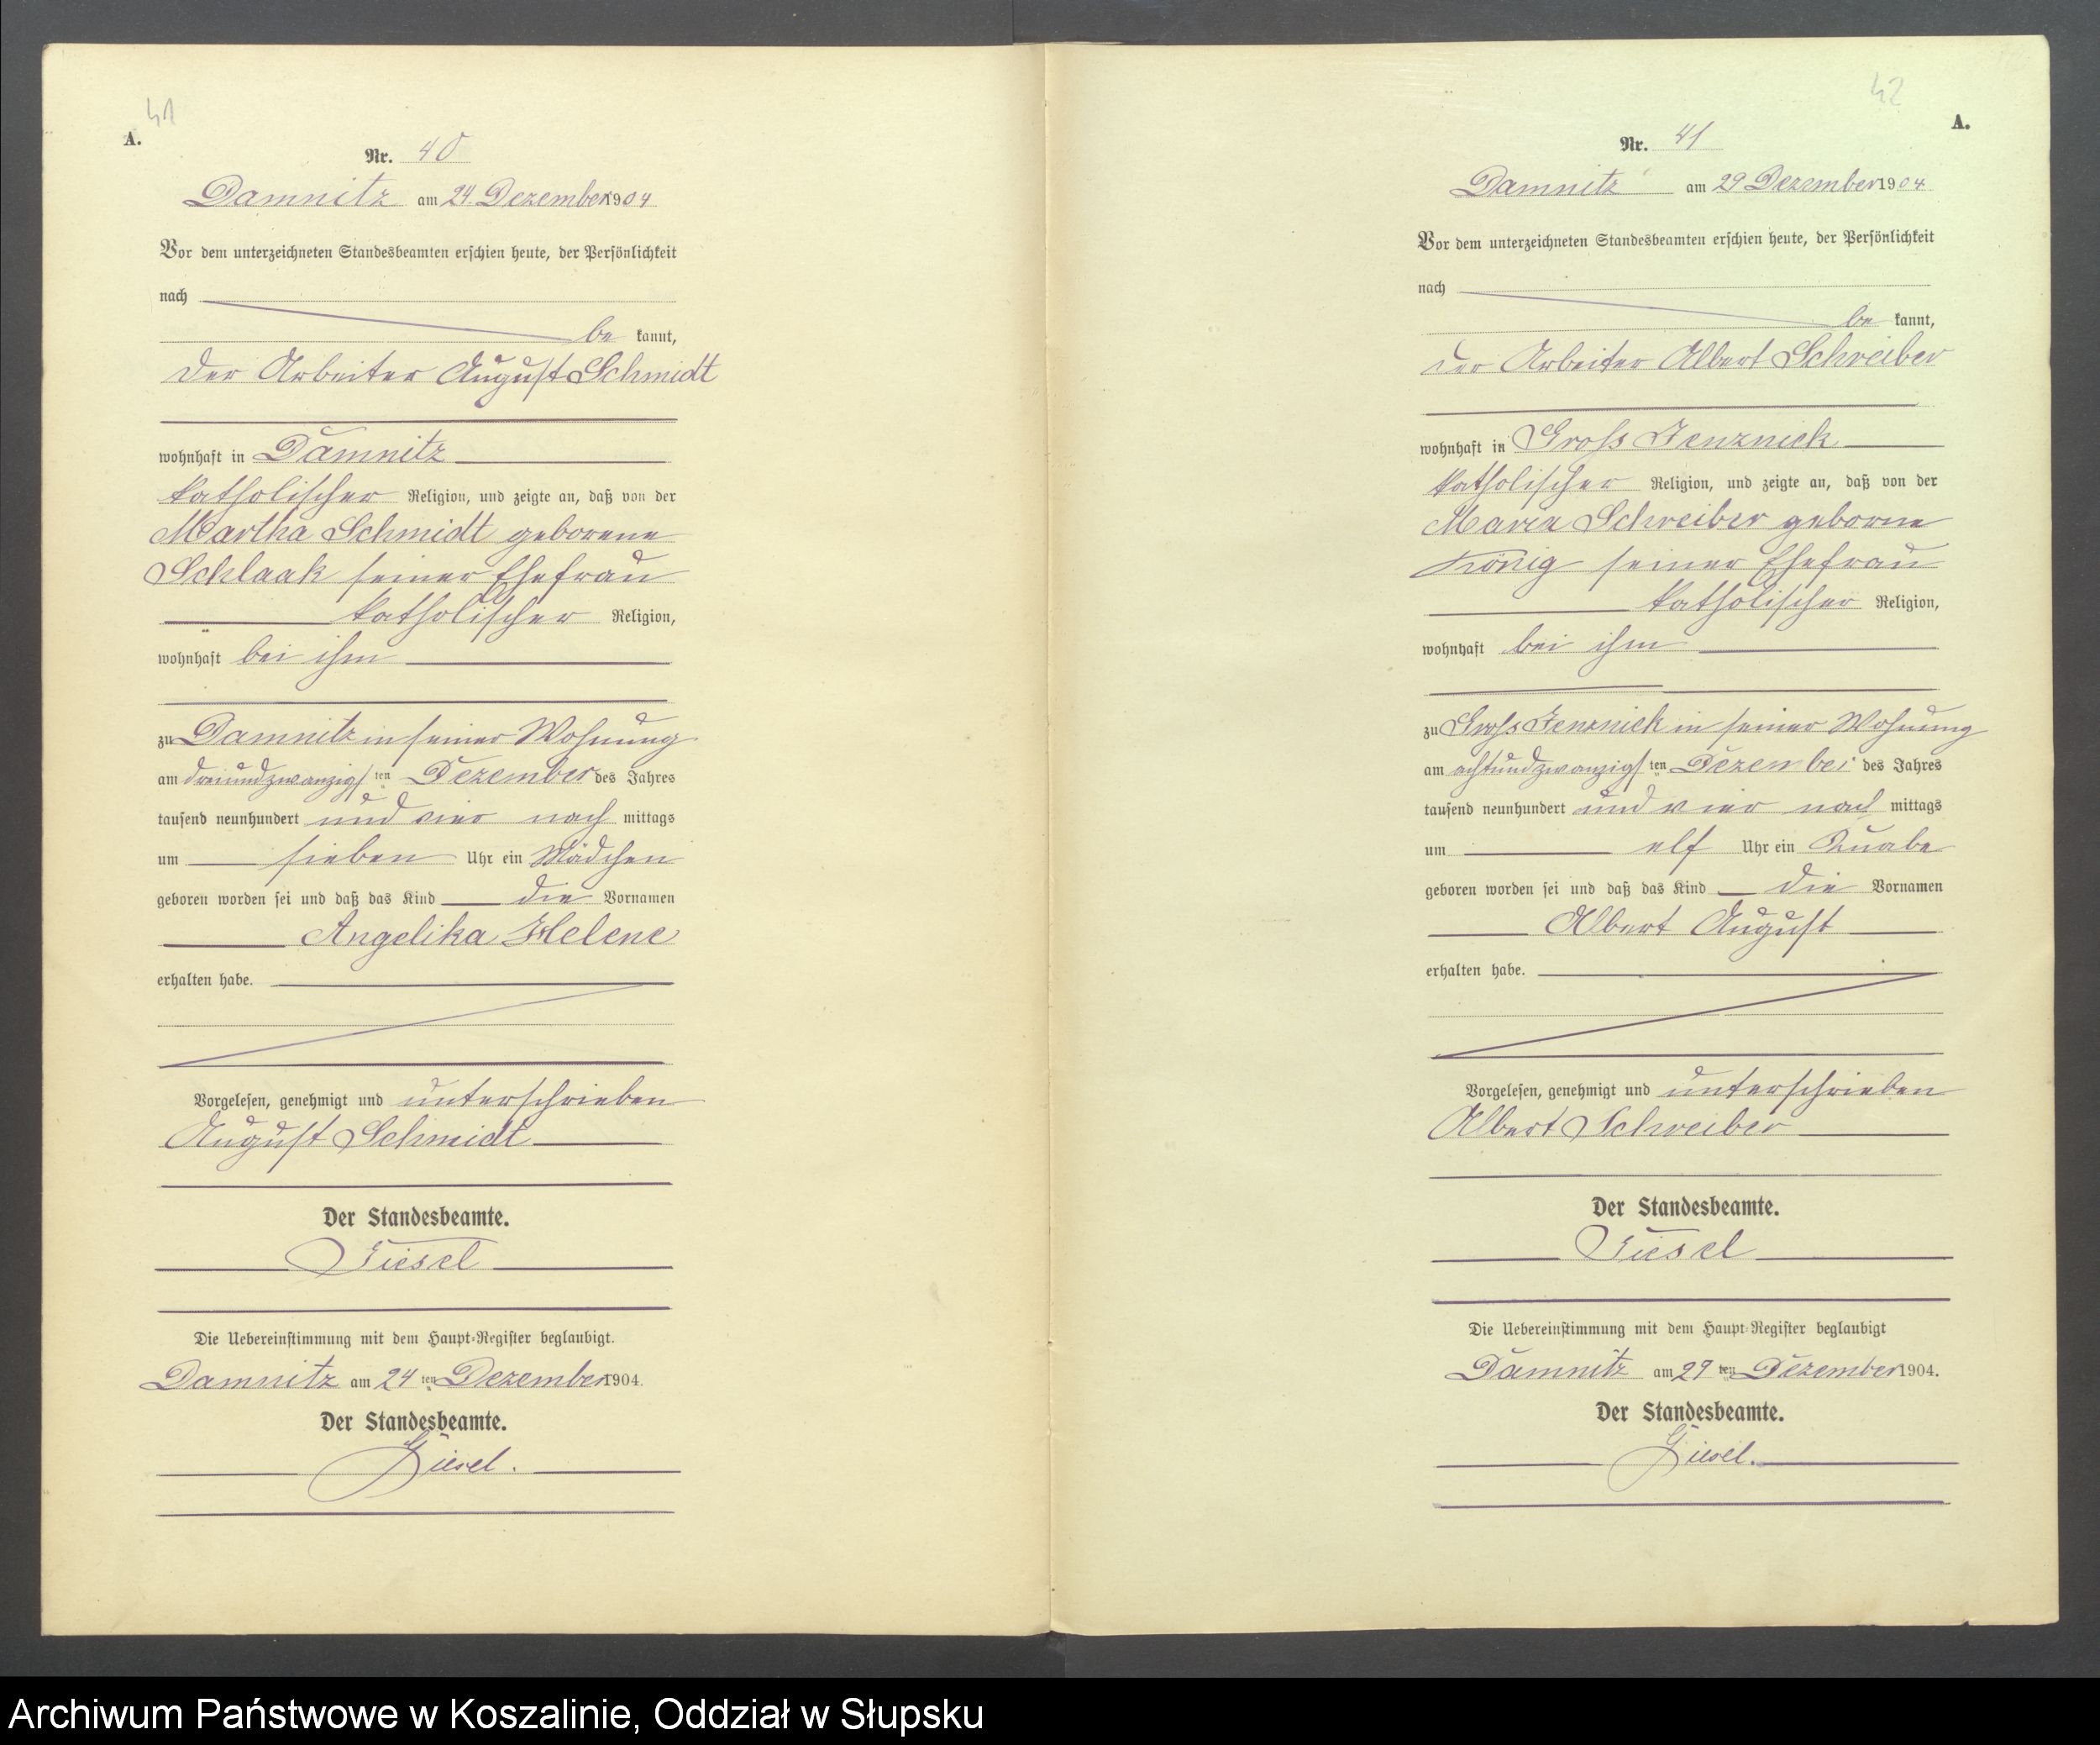 41
A.
Nr. 40
Damnitz am 24. Dezember 1904
Vor dem unterzeichneten Standesbeamten erschien heute, der Persönlichkeit
nach
be kannt,
der Arbeiter August Schmidt
wohnhaft in Damnitz
katholischer Religion, und zeigte an, daß von der
Martha Schmidt geborene
Schlaak seiner Ehefrau
katholischer Religion,
wohnhaft bei ihm
zu Damnitz in seiner Wohnung
am dreiundzwanzigsten Dezember des Jahres
tausend neunhundert und vier nach mittags
um sieben Uhr ein Mädchen
geboren worden sei und daß das Kind die Vornamen
Angelika Helene
erhalten habe.
Vorgelesen, genehmigt und unterschrieben
August Schmidt
Der Standesbeamte.
Giesel
Die Uebereinstimmung mit dem Haupt-Register beglaubigt.
Damnitz am 24 ten Dezember 1904.
Der Standesbeamte.
Giesel.
42
A.
Nr. 41
Damnitz am 29 Dezember 1904
Vor dem unterzeichneten Standesbeamten erschien heute, der Persönlichkeit
nach
be kannt,
der Arbeiter Albert Schreiber
wohnhaft in Gross Jenznick
katholischer Religion, und zeigte an, daß von der
Maria Schreiber geborne
König seiner Ehefrau
katholischer Religion,
wohnhaft bei ihm
zu Gross Jenznick in seiner Wohnung
am achtundzwanzigsten Dezember des Jahres
tausend neunhundert und vier nach mittags
um elf Uhr ein Knabe
geboren worden sei und daß das Kind die Vornamen
Albert August
erhalten habe.
Vorgelesen, genehmigt und unterschrieben
Albert Schreiber
Der Standesbeamte.
Giesel
Die Uebereinstimmung mit dem Haupt-Register beglaubigt
Damnitz am 29 ten Dezember 1904.
Der Standesbeamte.
Giesel.
Archiwum Państwowe w Koszalinie, Oddział w Słupsku